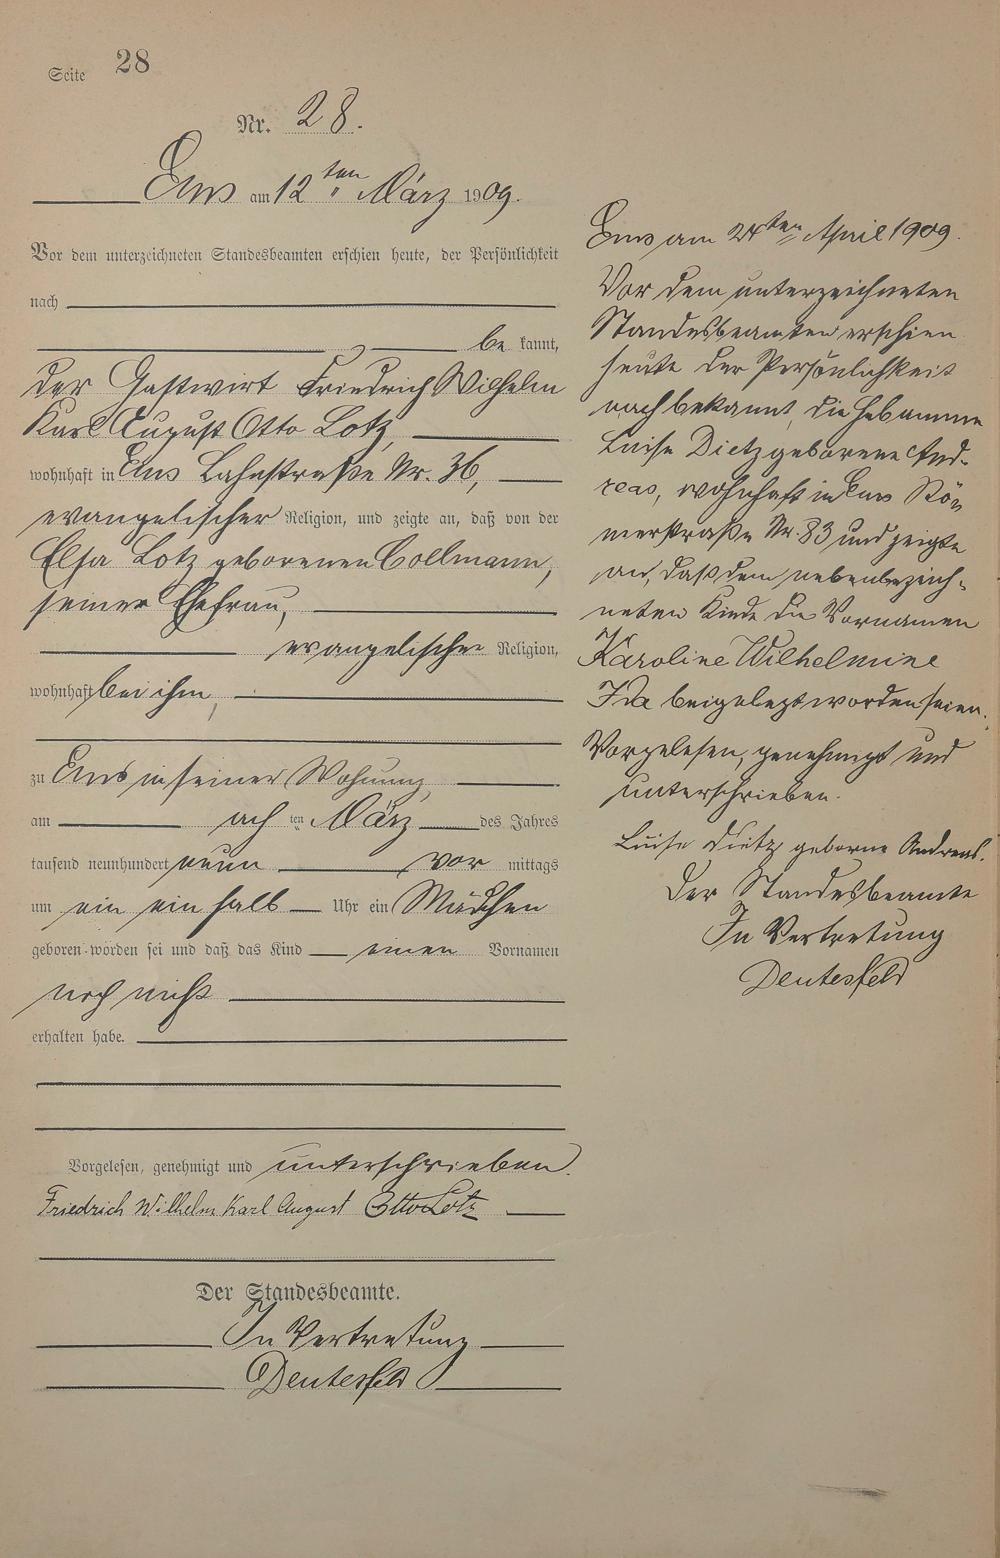 Seite 28
Nr. 28.
Ems am 12ten März 1909.
Vor dem unterzeichneten Standesbeamten erschien heute, der Persönlichkeit
nach
be kannt,
der Gastwirt Friedrich Wilhelm
Karl August Otto Lotz,
wohnhaft in Ems Lahnstraße Nr. 36,
evangelischer Religion, und zeigte an, daß von der
Elsa Lotz geborenen Collmann,
seiner Ehefrau,
evangelischer Religion,
wohnhaft bei ihm,
zu Ems in seiner Wohnung,
am ach ten März des Jahres
tausend neunhundert neun vor mittags
um ein ein halb Uhr ein Mädchen
geboren worden sei und daß das Kind einen Vornamen
noch nicht
erhalten habe.
Vorgelesen, genehmigt und unterschrieben.
Friedrich Wilhelm Karl August Otto Lotz
Der Standesbeamte.
In Vertretung
Deutesfeld
Ems am ten April 1909.
Vor dem unterzeichneten
Standesbeamten erschien
heute der Persönlichkeit
nach bekannt, die Hebamme
Luise Dietz geborene And-
reas, wohnhaft in Ems Rö-
merstraße Nr. 83 und zeigte
an, daß dem nebenbezeich-
neten Kinde die Vornamen
Karoline Wilhelmine
Ida beigelegt worden seien.
Vorgelesen, genehmigt und
unterschrieben.
Luise Dietz geborne Andreas.
Der Standesbeamte
In Vertretung
Deutesfeld